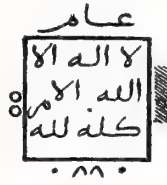 عام
لا اله الا
الله الامر
كله لله
٨٨